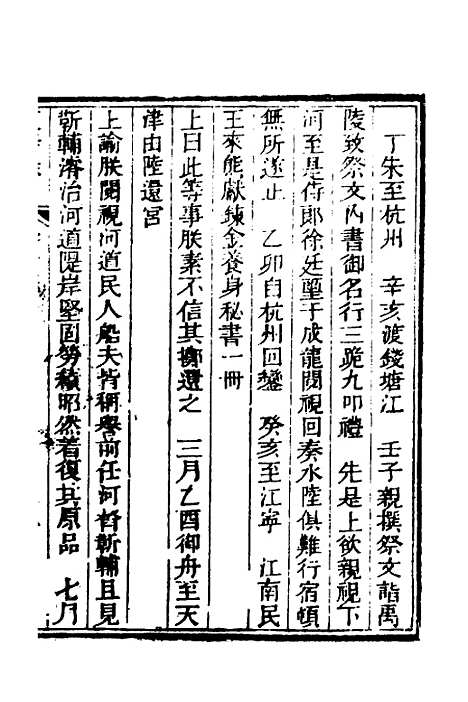 丁未至杭州　辛亥渡錢塘江　壬子親撰祭文詣禹
陵致祭文內書御名行三跪九叩禮　先是上欲親視下
河至是侍郎徐廷璽于成龍閱視回奏水陸俱難行宿頓
無所遂止　乙卯自杭州回鑾　癸亥至江寧　江南民
王來熊獻鍊金養身秘書一冊
上曰此等事朕素不信其擲還之　三月乙酉御舟至天
津由陸還宮
上諭朕閱視河道民人船夫皆稱譽前任河督靳輔且見
靳輔濬治河道隄岸堅固勞績昭然着復其原品　七月